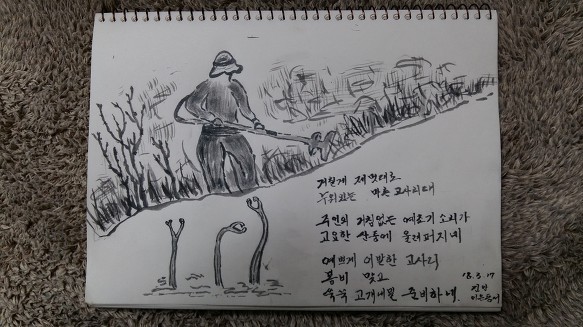 거칠게 제멋대로
누워있는 마른 고사리대
주인의 거침없는 예초기 소리가
고요한 산등에 울려퍼지네
예쁘게 이발한 고사리
봄비 맞고
쑥쑥 고개내밀 준비하네.
'18. 3. 17